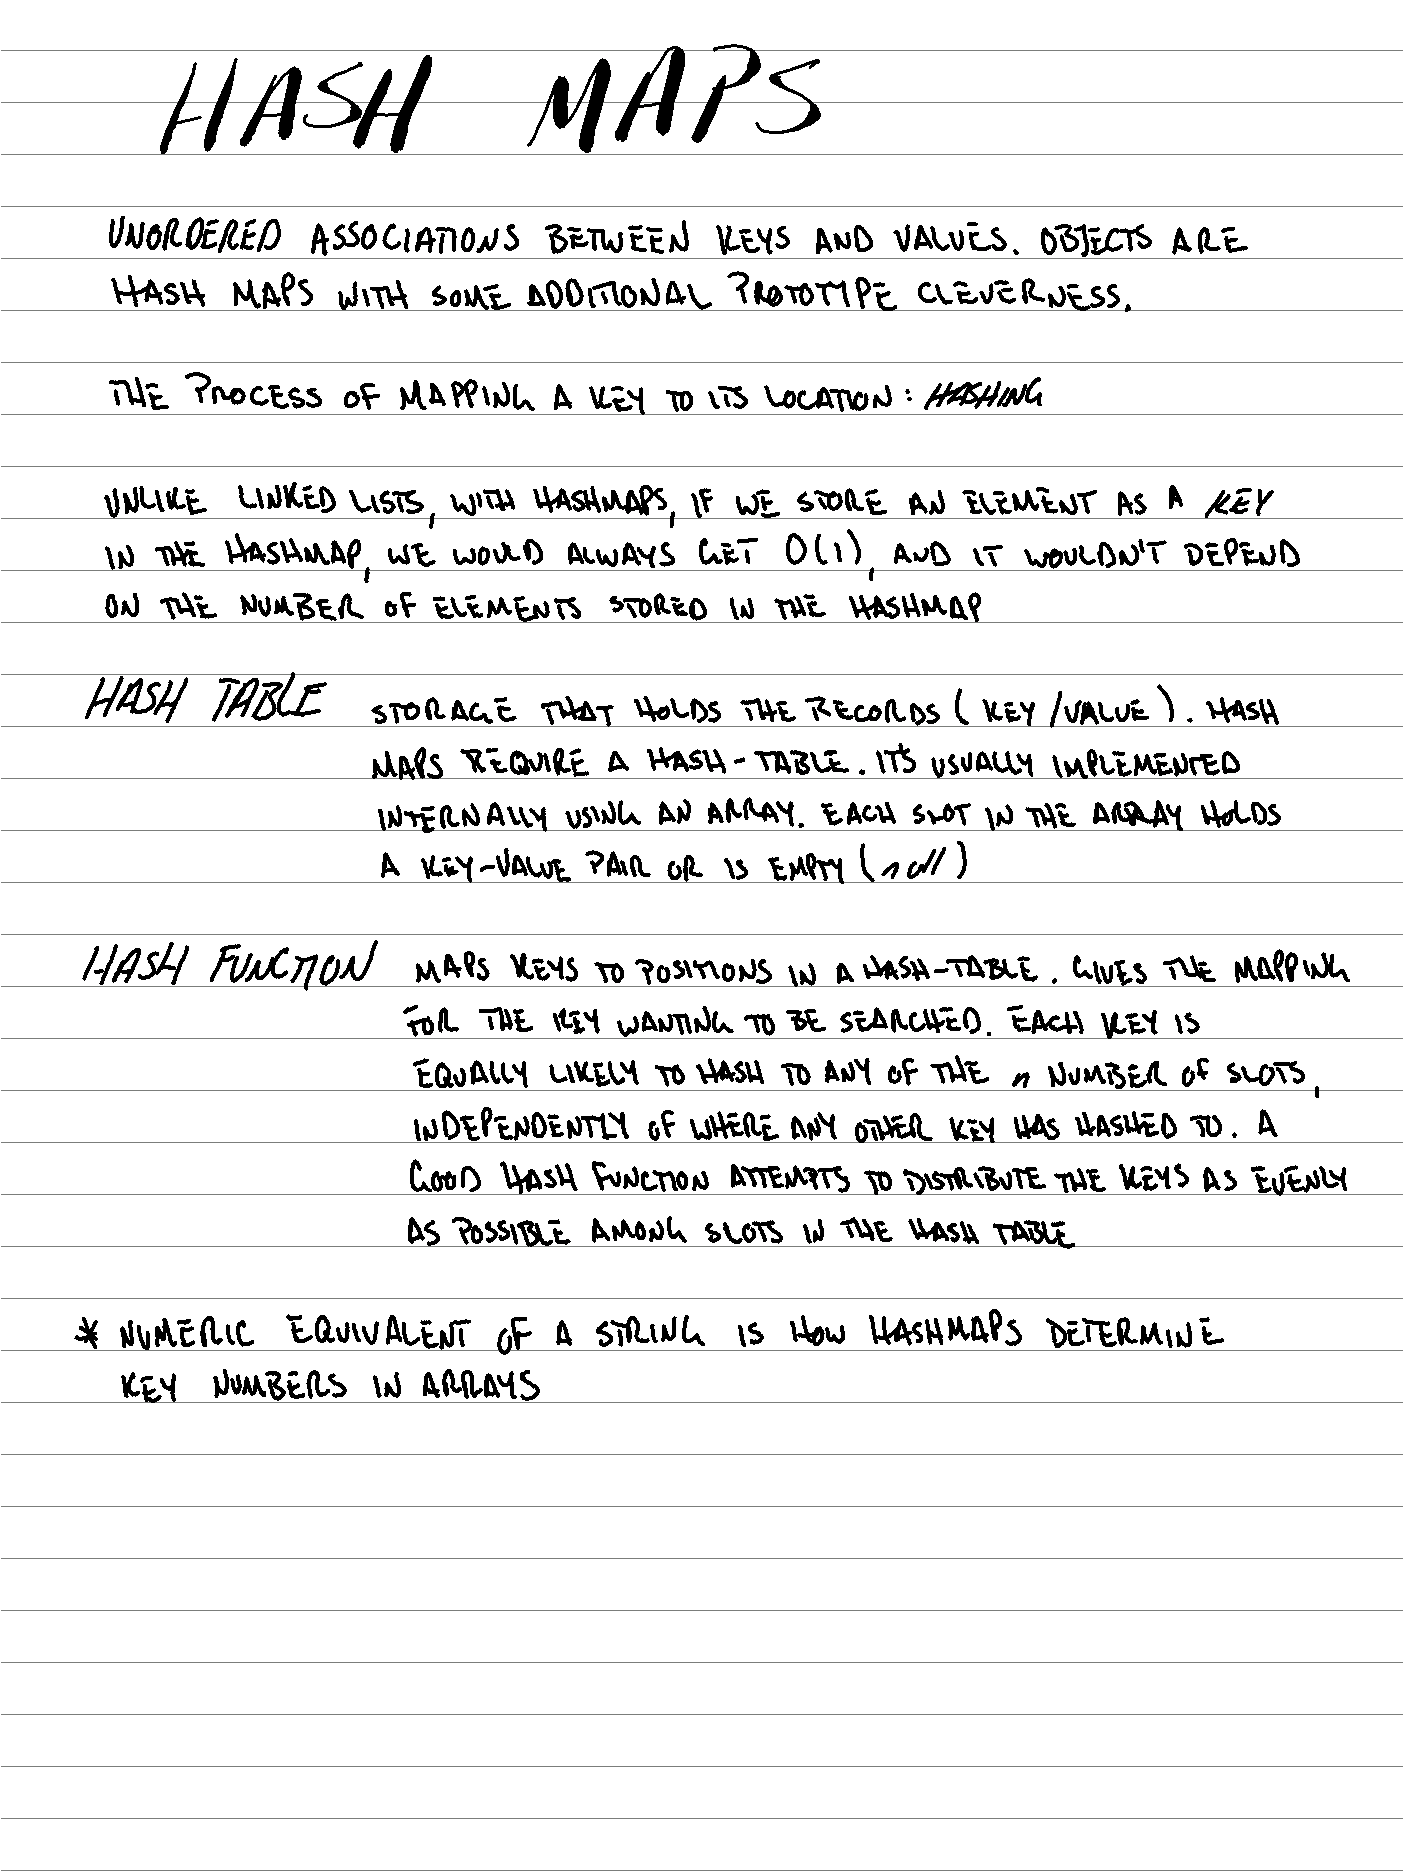 HASH MAPS
UNORDERED ASSOCIATIONS BETWEEN KEYS AND VALUES. OBJECTS ARE
HASH MAPS WITH SOME ADDITIONAL PROTOTYPE CLEVERNESS.
THE PROCESS OF MAPPING A KEY TO ITS LOCATION: HASHING
UNLIKE LINKED LISTS, WITH HASHMAPS, IF WE STORE AN ELEMENT AS A KEY
IN THE HASHMAP, WE WOULD ALWAYS GET O(1), AND IT WOULDN'T DEPEND
ON THE NUMBER OF ELEMENTS STORED IN THE HASHMAP
HASH TABLE STORAGE THAT HOLDS THE RECORDS (KEY/VALUE). HASH
MAPS REQUIRE A HASH-TABLE. IT'S USUALLY IMPLEMENTED
INTERNALLY USING AN ARRAY. EACH SLOT IN THE ARRAY HOLDS
A KEY-VALUE PAIR OR IS EMPTY (null)
HASH FUNCTION MAPS KEYS TO POSITIONS IN A HASH-TABLE. GIVES THE MAPPING
FOR THE KEY WANTING TO BE SEARCHED. EACH KEY IS
EQUALLY LIKELY TO HASH TO ANY OF THE n NUMBER OF SLOTS,
INDEPENDENTLY OF WHERE ANY OTHER KEY HAS HASHED TO. A
GOOD HASH FUNCTION ATTEMPTS TO DISTRIBUTE THE KEYS AS EVENLY
AS POSSIBLE AMONG SLOTS IN THE HASH TABLE
* NUMERIC EQUIVALENT OF A STRING IS HOW HASHMAPS DETERMINE
KEY NUMBERS IN ARRAYS